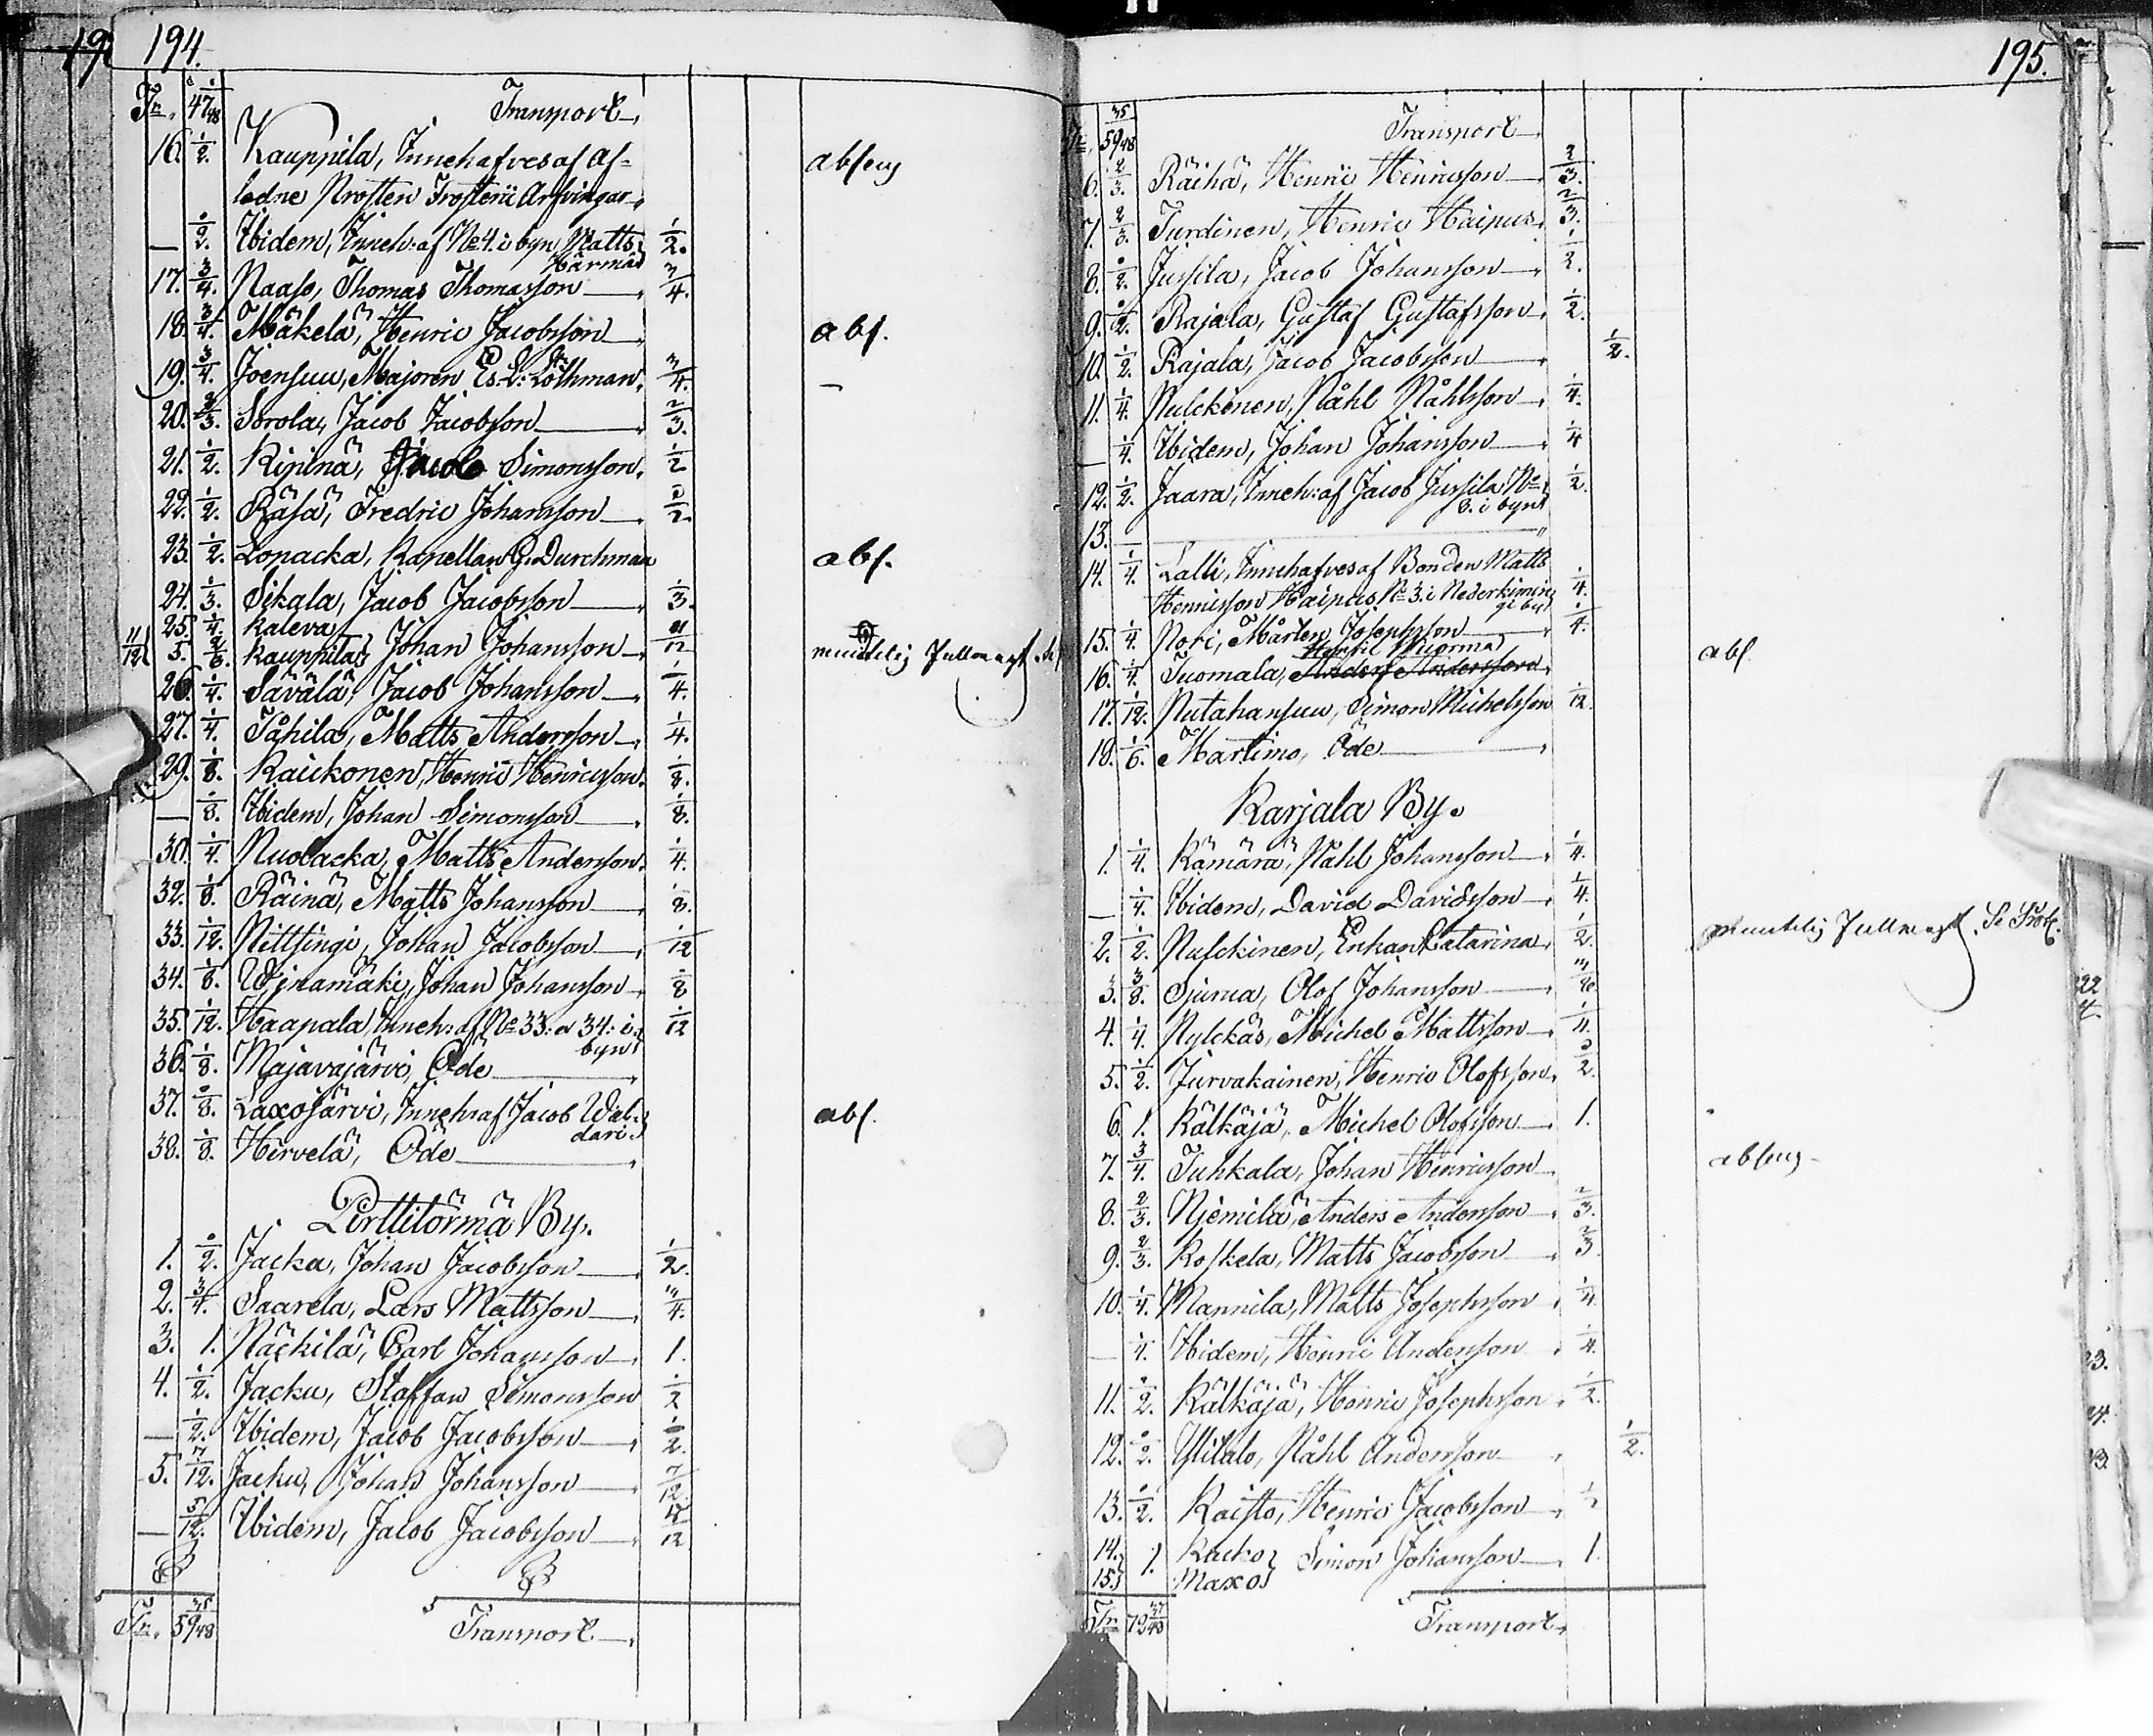 194.
Tr. 47 1/48 Transport
16. 1/2. Kauppila, Innehafves af af- absens
ledne Prosten Frosterii Arfvingar
— 1/2. Ibidem, Inneh: af No 4. i byn, Matts 1/2.
Härmä
17. 3/4. Paaso, Thomas Thomasson 3/4.
18. 3/4. Mäkelä, Henric Jacobsson abs.
19. 3/4. Joensuu, Majoren Lothman 3/4. —
20. 2/3. Sorola, Jacob Jacobsson 2/3.
21. 1/2. Kipinä, Jacob Simonsson 1/2
22. 1/2. Räsä, Fredric Johansson 1/2
23. 1/2. Lopacka, Kapellan G. Durchman abs.
24. 1/3. Sikala, Jacob Jacobsson 1/3.
25. 1/4. Kaleva
11/12 5. 2/3. Kauppila Johan Johansson 11/12 muntelig Fullmagt
26. 1/4. Sävälä, Jacob Johansson 1/4.
27. 1/4. Tåhila, Matts Andersson 1/4.
29. 1/8. Kaickonen, Henric Henricsson 1/8.
— 1/8. Ibidem, Johan Simonsson 1/8.
30. 1/4. Nuobacka, Matts Andersson 1/4.
32. 1/8. Räinä, Matts Johansson 1/8.
33. 1/12. Nittsingi, Johan Jacobsson 1/12
34. 1/8. Wijnamäki, Johan Johansson 1/8
35. 1/12. Haapala, Inneh: af No 33: o 34: i 1/12
byn
36. 1/8. Majavajärvi, Öde
37. 1/8. Laxojärvi, Inneh: af Jacob Wal- abs.
dari
38. 1/8. Hirvelä, Öde
Pirttitörmä By.
1. 1/2. Jacka, Johan Jacobsson 1/2.
2. 3/4. Saarela, Lars Mattsson 3/4.
3. 1. Näckilä, Carl Johansson 1.
4. 1/2. Jacku, Staffan Simonsson 1/2
— 1/2. Ibidem, Jacob Jacobsson 1/2.
5. 7/12. Jacku, Johan Johansson 7/12.
— 5/12. Ibidem, Jacob Jacobsson 5/12
Tr. 59 35/48 Transport
195.
Tr. 59 35/48 Transport
6. 2/3. Räihä, Henric Henricsson 2/3.
7. 2/3. Turdinen, Henric Haipus 2/3.
8. 1/2. Jussila, Jacob Johansson 1/2.
9. 1/2. Rajala, Gustaf Gustafsson 1/2.
10. 1/2. Rajala, Jacob Jacobsson 1/2.
11. 1/4. Pulckinen, Påhl Påhlsson 1/4.
— 1/4. Ibidem, Johan Johansson 1/4
12. 1/2. Jaara, Inneh: af Jacob Jussila No 1/2.
8. i byn
13. —
14. 1/4. Lalli, Innehafves af Bonden Matts
Hennisson Haipus No 3. i Nederkimin 1/4.
gi by
15. 1/4. Pori, Mårten Josephsson 1/4.
16. 1/4. Tuomala, Anders Andersson abs.
17. 1/12. Putahansuu, Simon Michelsson 1/12
18. 1/6. Martimo, Öde
Karjala By.
1. 1/4. Kämärä, Påhl Johansson 1/4.
— 1/4. Ibidem, David Davidsson 1/4.
2. 1/2. Pulckinen, Enkan Catarina 1/2. muntelig Fullmagt. Se Prot.
3. 3/8. Sjurua, Olof Johansson 3/8.
4. 1/4. Pylckäs, Michel Mattsson 1/4.
5. 1/2. Jurvakainen, Henric Olofsson 1/2.
6. 1. Kälkäjä, Michel Olofsson 1.
7. 3/4. Tuhkala, Johan Henricsson absens
8. 2/3. Njemilä, Anders Andersson 2/3.
9. 2/3. Koskela, Matts Jacobsson 2/3
10. 1/4. Mannila, Matts Josephsson 1/4
— 1/4. Ibidem, Henric Andersson 1/4.
11. 1/2. Kälkäjä, Henric Josephsson 1/2.
12. 1/2. Ylitalo, Påhl Andersson 1/2.
13. 1/2. Kaisto, Henric Jacobsson 1/2
14. Kacko
15. 1. Maxo Simon Johansson 1.
Tr. Transport